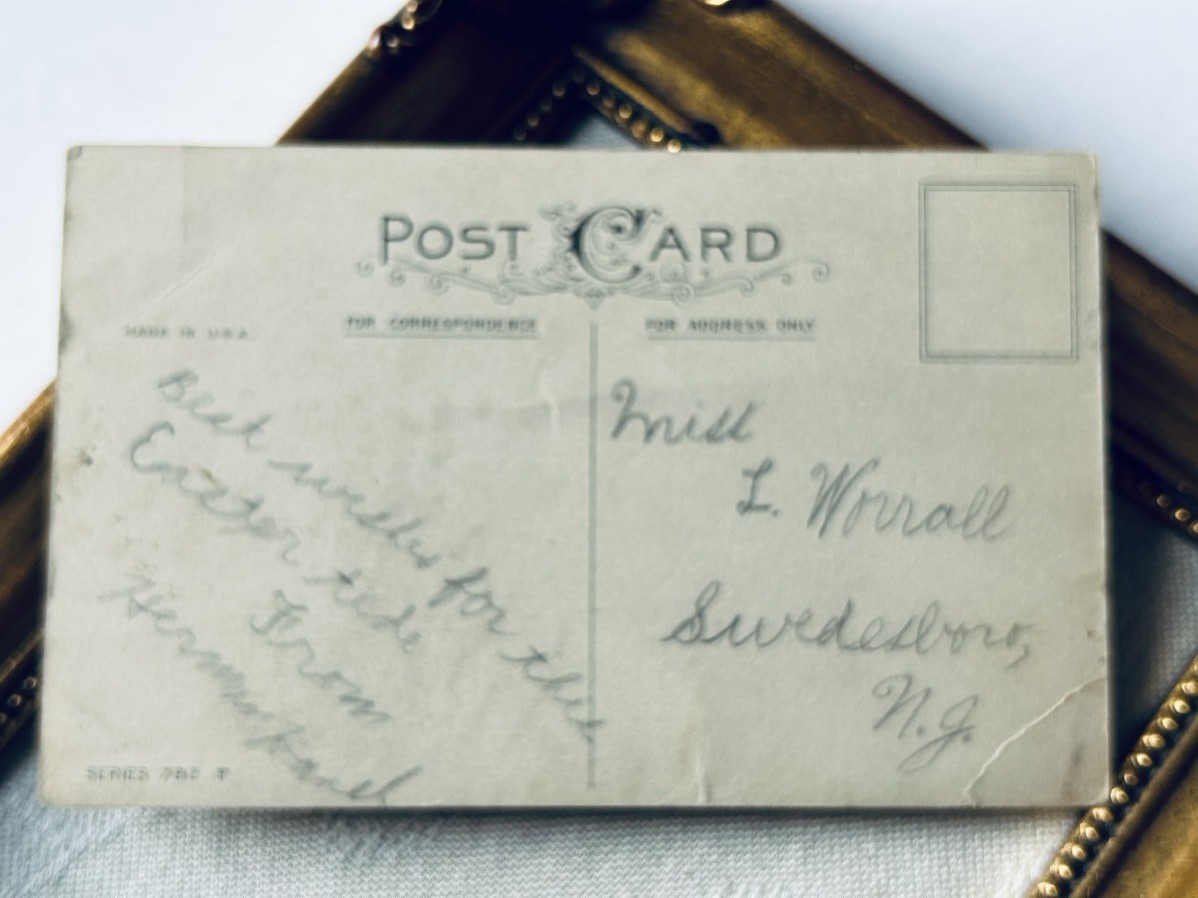 POST CARD
FOR CORRESPONDENCE
FOR ADDRESS ONLY
MADE IN U.S.A.
Best wishes for the
Easter tide
From
Miss
L. Worrall
Swedesboro,
N.J.
SERIES